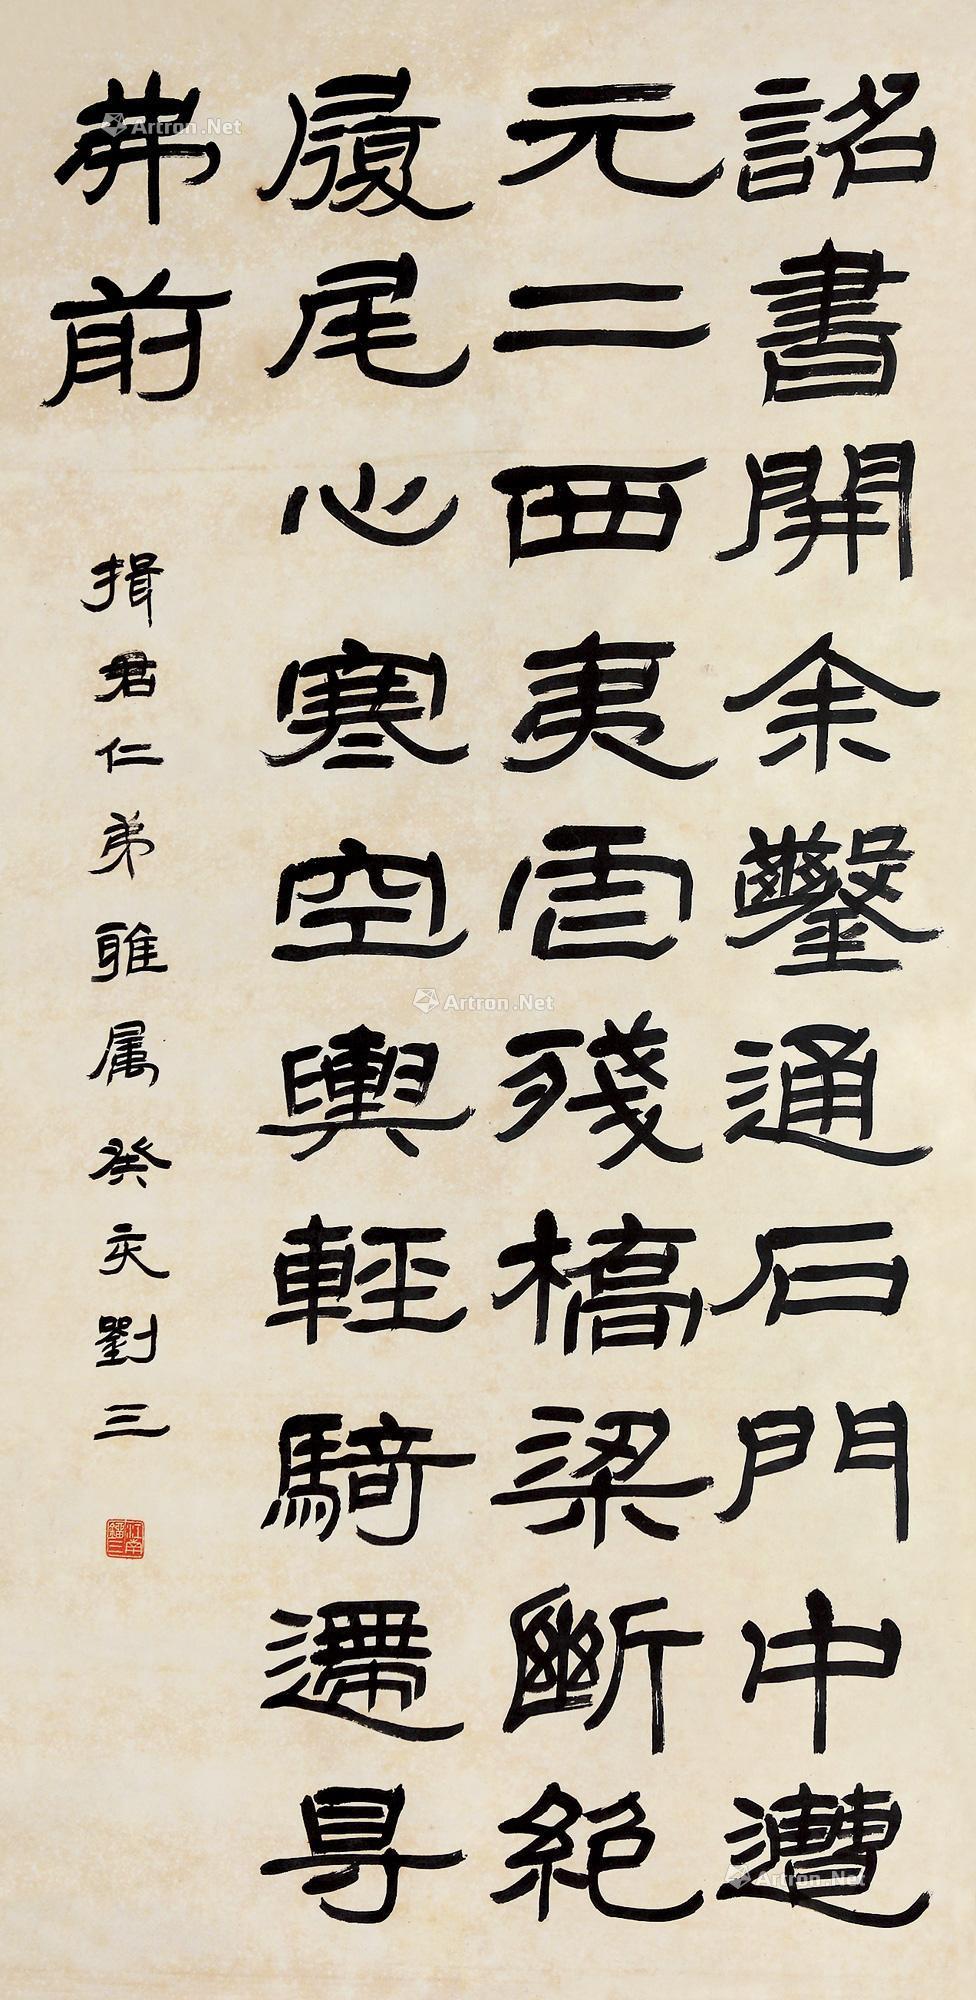 詔書開余鑿通石門中遭
元二西夷虐殘橋梁斷絕
履尾心寒空輿輕騎遰㝵
弗前
揖君仁弟雅属癸亥劉三
江南鎦三
Artron.Net
Artron.Net
Artron.Net